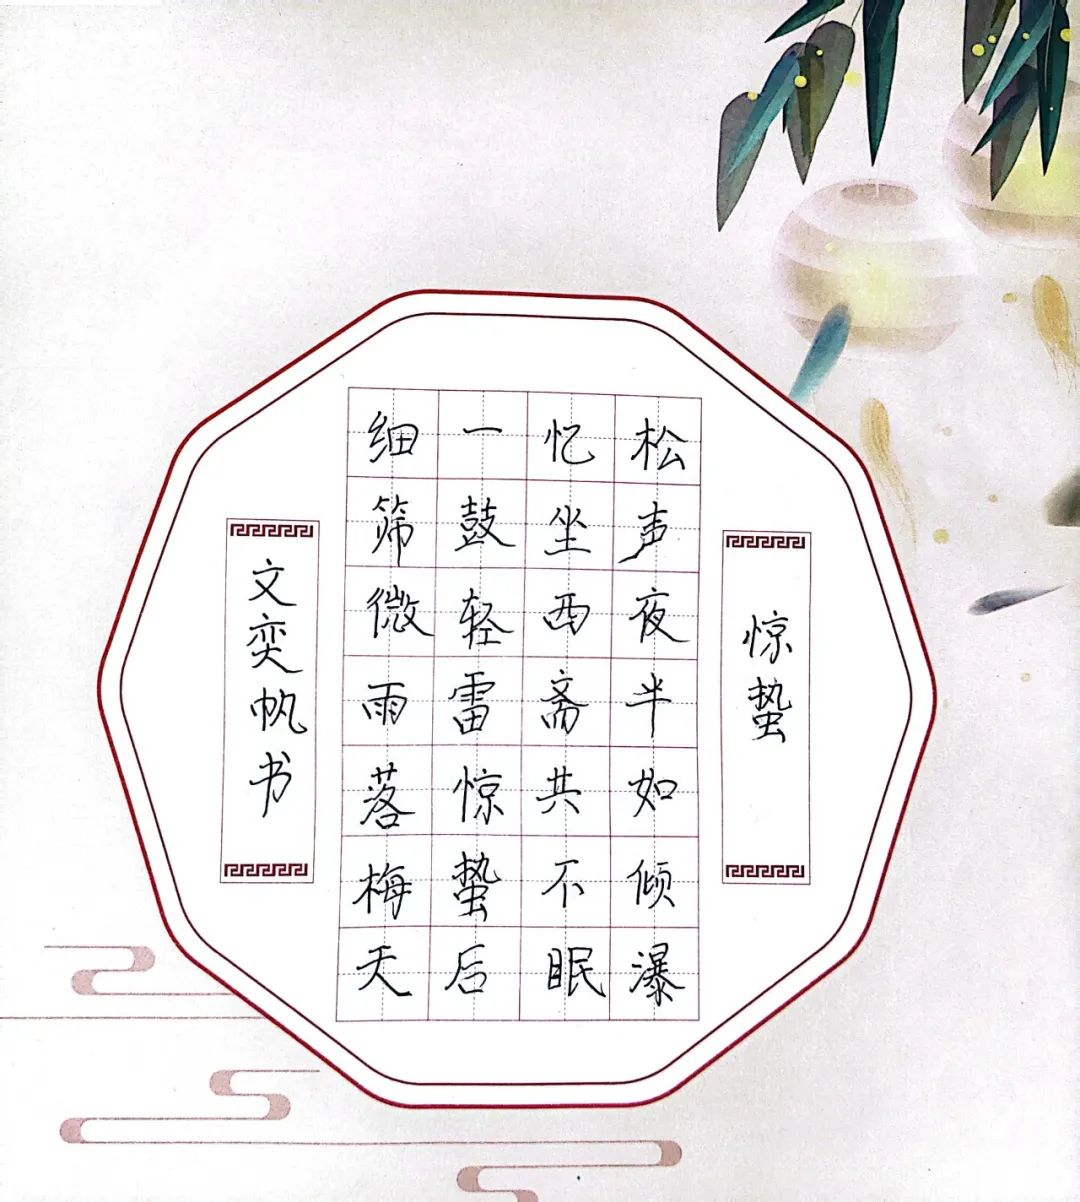 惊蛰
松声夜半如倾瀑
忆坐西斋共不眠
一鼓轻雷惊蛰后
细筛微雨落梅天
文奕帆书